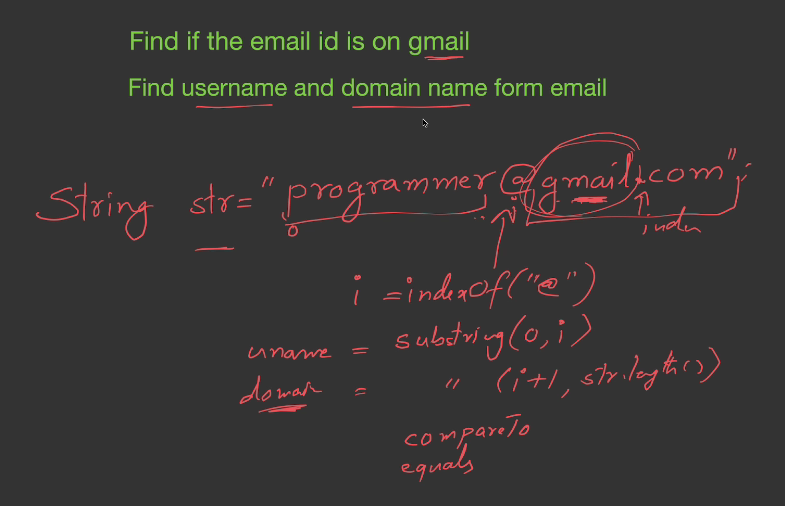 Find if the email id is on gmail
Find username and domain name form email
String str= "programmer@gmail.com";
0 i index
i = indexOf("@")
uname = substring(0, i)
domain = " (i+1, str.length())
compareTo
equals